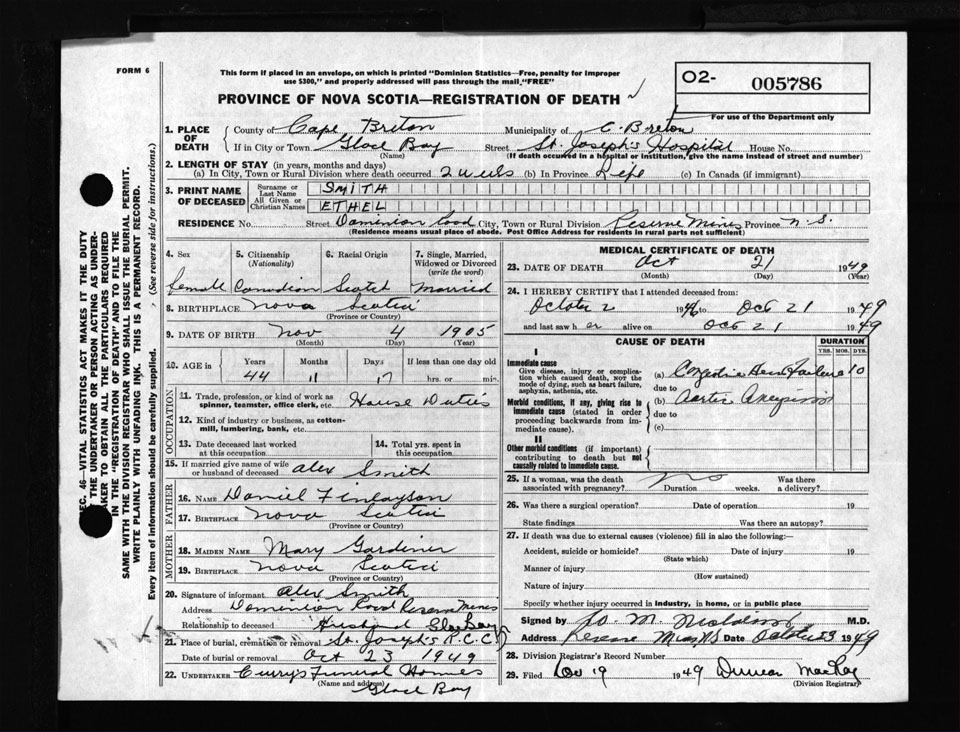 FORM 6
This form if placed in an envelope, on which is printed "Dominion Statistics—Free, penalty for improper
use $300," and properly addressed will pass through the mail "FREE"
PROVINCE OF NOVA SCOTIA—REGISTRATION OF DEATH
02- 005786
For use of the Department only
1. PLACE OF DEATH County of Cape Breton Municipality of C. Breton
If in City or Town Glace Bay Street St. Joseph's Hospital House No.
(Name) (If death occurred in a hospital or institution, give the name instead of street and number)
2. LENGTH OF STAY (in years, months and days)
(a) In City, Town or Rural Division where death occurred 2 wells (b) In Province Life (c) In Canada (if immigrant)
3. PRINT NAME OF DECEASED Surname or Last Name SMITH
All Given or Christian Names ETHEL
RESIDENCE No. Street Dominion Road City, Town or Rural Division Reserve Mines Province N.S.
(Residence means usual place of abode. Post Office Address for residents in rural parts not sufficient)
4. Sex 5. Citizenship (Nationality) 6. Racial Origin 7. Single, Married, Widowed or Divorced (write the word)
female Canadian Scotch Married
8. BIRTHPLACE Nova Scotia
(Province or Country)
9. DATE OF BIRTH Nov 4 1905
(Month) (Day) (Year)
10. AGE in Years Months Days If less than one day old
44 11 17 hrs. or min.
OCCUPATION
11. Trade, profession, or kind of work as spinner, teamster, office clerk, etc. House Duties
12. Kind of industry or business, as cotton-mill, lumbering, bank, etc.
13. Date deceased last worked at this occupation 14. Total yrs. spent in this occupation
15. If married give name of wife or husband of deceased Alex Smith
FATHER
16. NAME Daniel Finlayson
17. BIRTHPLACE Nova Scotia
(Province or Country)
MOTHER
18. MAIDEN NAME Mary Gardiner
19. BIRTHPLACE Nova Scotia
(Province or Country)
20. Signature of informant Alex Smith
Address Dominion Road Reserve Mines
Relationship to deceased Husband Glace Bay
21. Place of burial, cremation or removal St. Joseph's R.C.C.
Date of burial or removal Oct 23 1949
22. UNDERTAKER Curry's Funeral Homes
(Name and address)
Glace Bay
MEDICAL CERTIFICATE OF DEATH
23. DATE OF DEATH Oct 21 1949
(Month) (Day) (Year)
24. I HEREBY CERTIFY that I attended deceased from:
October 2 1946 to Oct 21 1949
and last saw her alive on Oct 21 1949
CAUSE OF DEATH DURATION
YRS. MOS. DYS.
I
Immediate cause
Give disease, injury or complication which caused death, NOT the mode of dying, such as heart failure, asphyxia, asthenia, etc.
(a) Congestive Heart Failure 10
due to
Morbid conditions, if any, giving rise to immediate cause (stated in order proceeding backwards from immediate cause).
(b) Aortic Aneurism
due to
(c)
II
Other morbid conditions (if important) contributing to death but not causally related to immediate cause.
25. If a woman, was the death associated with pregnancy? no Duration weeks. Was there a delivery?
26. Was there a surgical operation? Date of operation 19
State findings Was there an autopsy?
27. If death was due to external causes (violence) fill in also the following:—
Accident, suicide or homicide? Date of injury 19
(State which)
Manner of injury
(How sustained)
Nature of injury
Specify whether injury occurred in industry, in home, or in public place
Signed by M.D.
Address Reserve Mines N.S. Date October 23 1949
28. Division Registrar's Record Number
29. Filed Nov 19 1949 Duncan MacKay
(Division Registrar)
SEC. 46—VITAL STATISTICS ACT MAKES IT THE DUTY
OF THE UNDERTAKER OR PERSON ACTING AS UNDER-
TAKER TO OBTAIN ALL THE PARTICULARS REQUIRED
IN THE "REGISTRATION OF DEATH" AND TO FILE THE
SAME WITH THE DIVISION REGISTRAR WHO SHALL ISSUE THE BURIAL PERMIT.
WRITE PLAINLY WITH UNFADING INK. THIS IS A PERMANENT RECORD.
Every item of information should be carefully supplied. (See reverse side for instructions.)